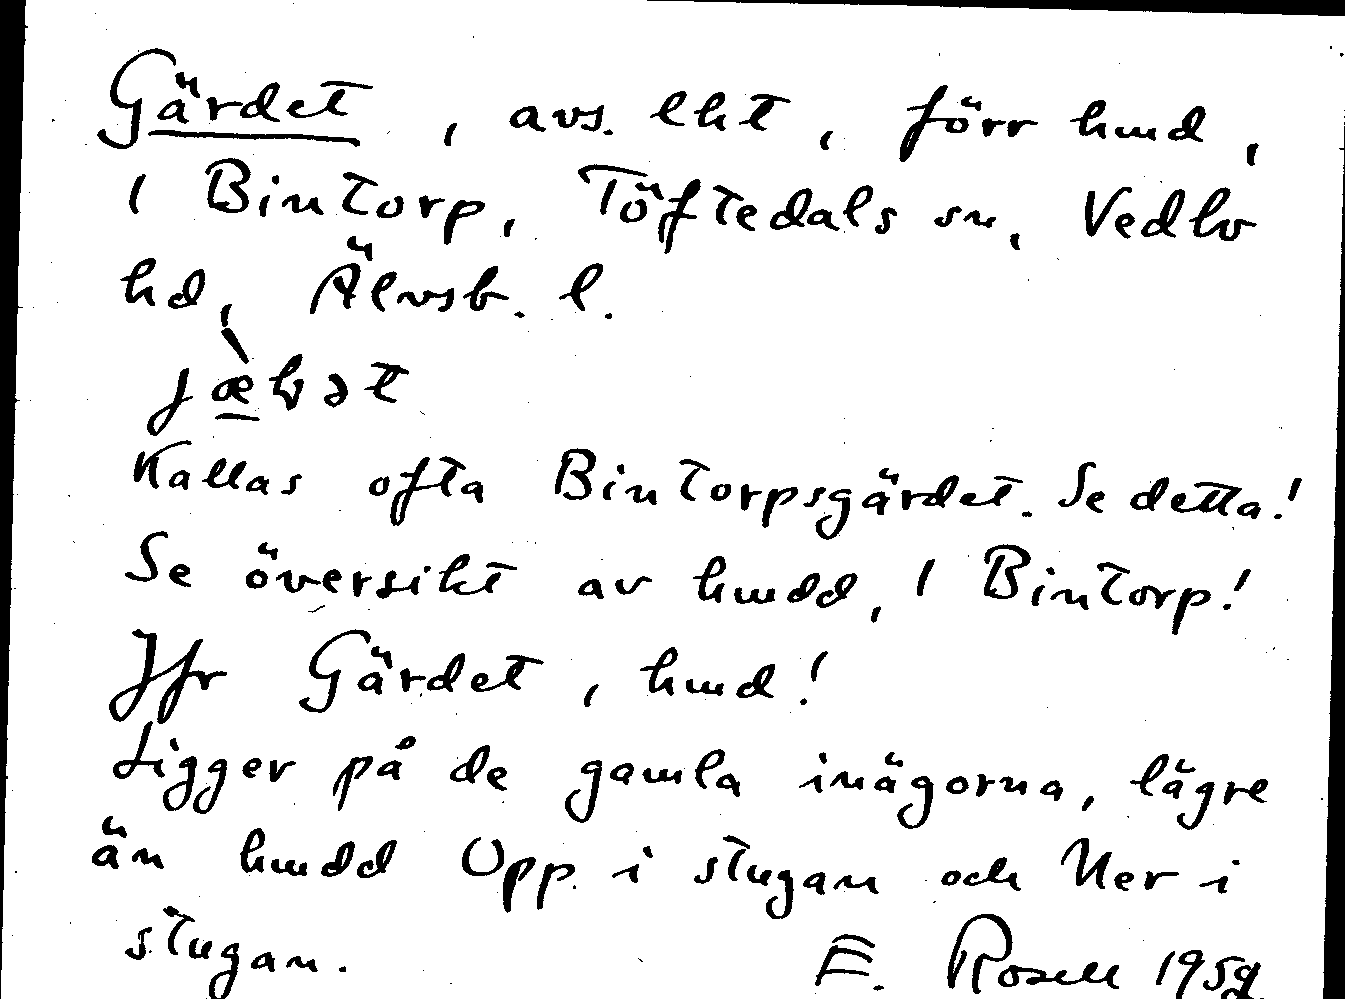 Gärdet, avs. lht, förr hmd,
i Bintorp, Töftedals sn, Vedbo
hd, Älvsb. l.
jæ̀ḷət
Kallas ofta Bintorpsgärdet. Se detta!
Se översikt av hmdd, i Bintorp!
Jfr Gärdet, hmd!
Ligger på de gamla inägorna, lägre
än hmdd Opp i stugan och Ner i
stugan. E. Rosell 1959